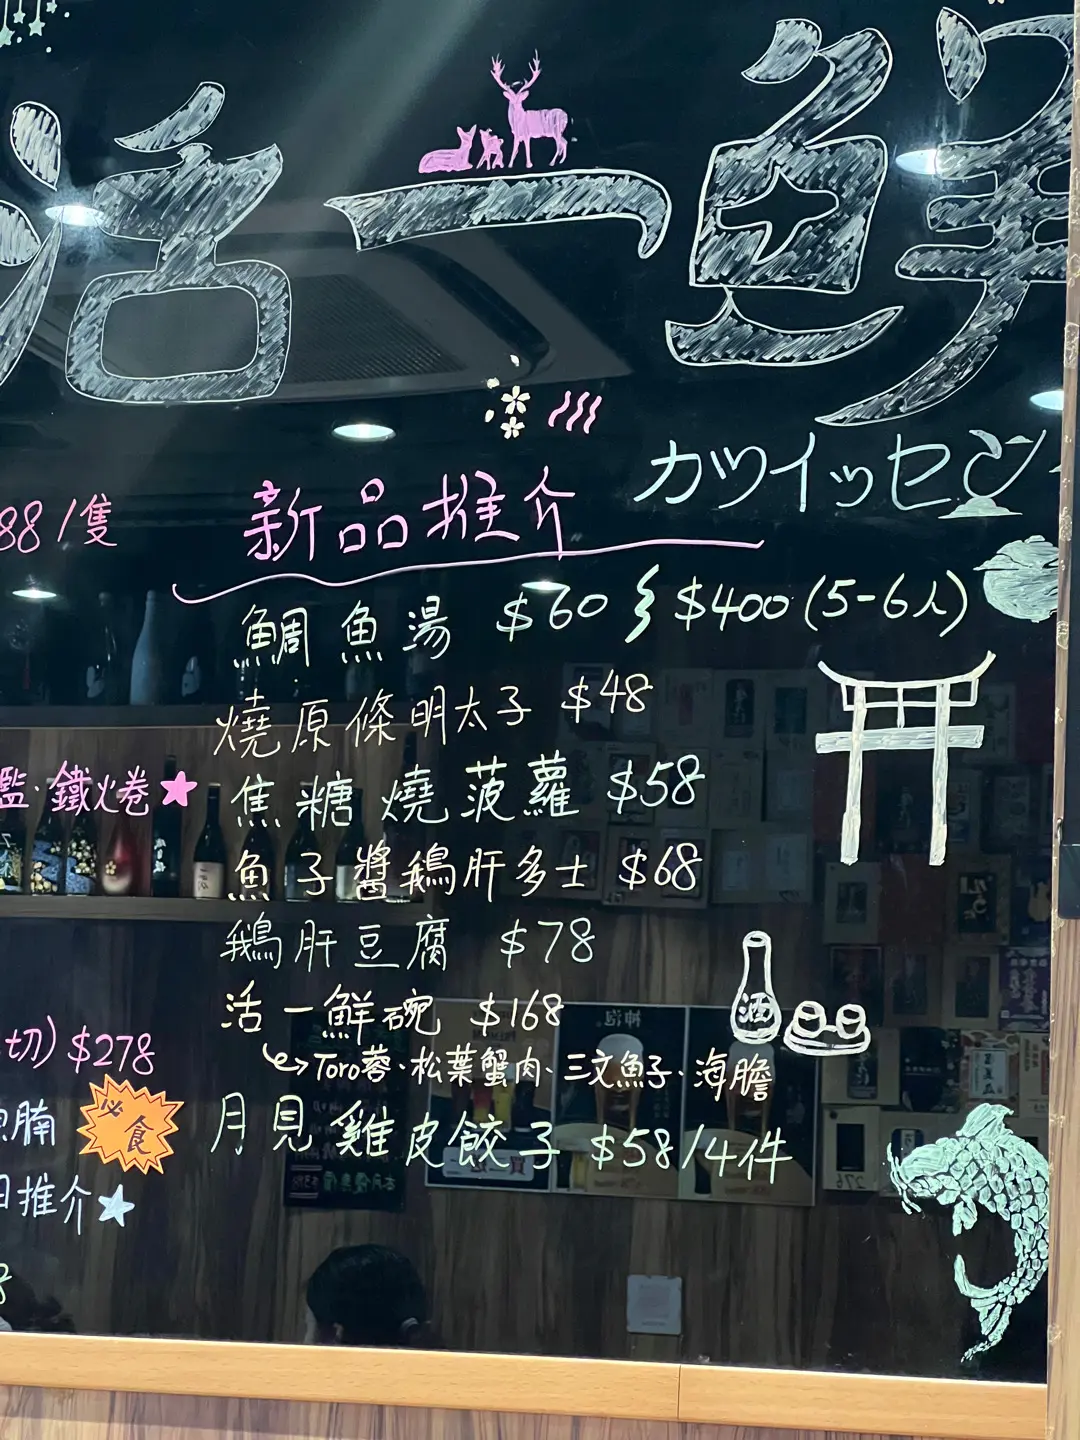 活一鮮
カツイッセン
88/隻
新品推介
鯛魚湯 $60 $400 (5-6人)
燒原條明太子 $48
焦糖燒菠蘿 $58
鐵燒★
魚子醬鵝肝多士 $68
鵝肝豆腐 $78
活一鮮碗 $168
Toro蓉、松葉蟹肉、三文魚子、海膽
切) $278
月見雞皮餃子 $58/4件
腩 必食
推介★
8
酒